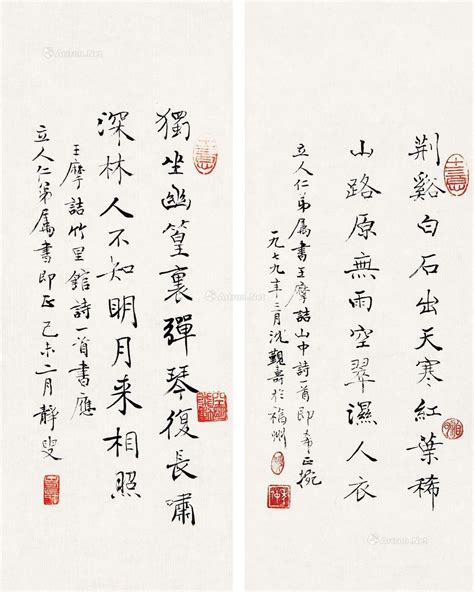 荆谿白石出天寒紅葉稀
山路原無雨空翠濕人衣
立人仁弟属書王摩詰山中詩一首即希正腕
一九七九年二月沈覲壽於福州
獨坐幽篁裏彈琴復長嘯
深林人不知明月来相照
王摩詰竹里館詩一首書應
立人仁弟属書即正己未二月靜叟
Artron.Net
Artron.Net
Artron.Net
Artron.Net